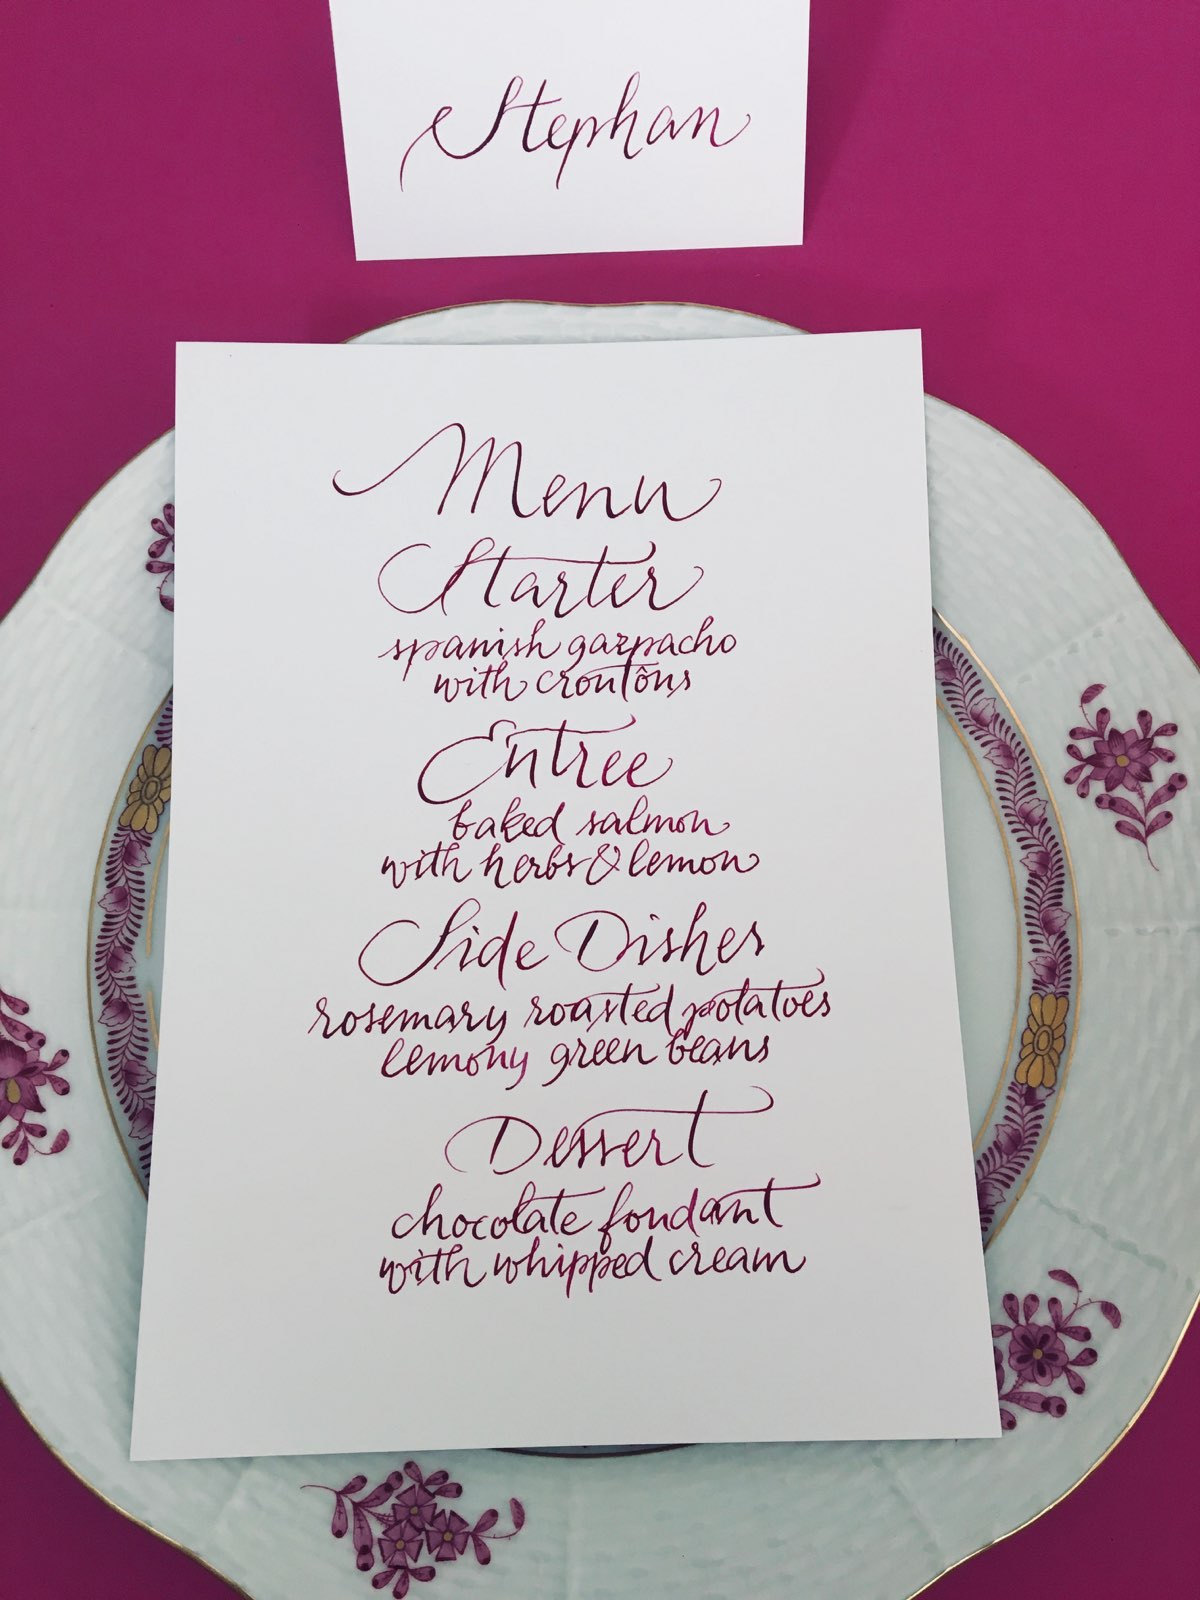 Stephan
Menu
Starter
spanish gazpacho
with croutons
Entree
baked salmon
with herbs & lemon
Side Dishes
rosemary roasted potatoes
lemony green beans
Dessert
chocolate fondant
with whipped cream